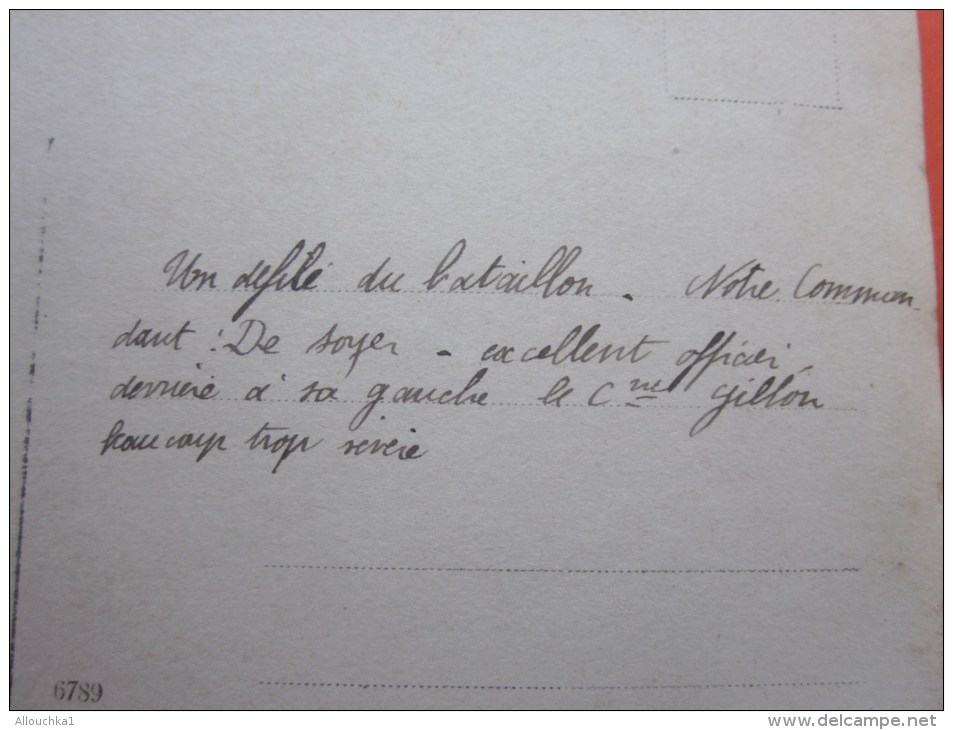 Un défilé du bataillon. Notre Comman-
dant : De soyer - excellent officier,
derrière à sa gauche le Cne Gillon
beaucoup trop sévère
6789
Allouchka1
www.delcampe.net